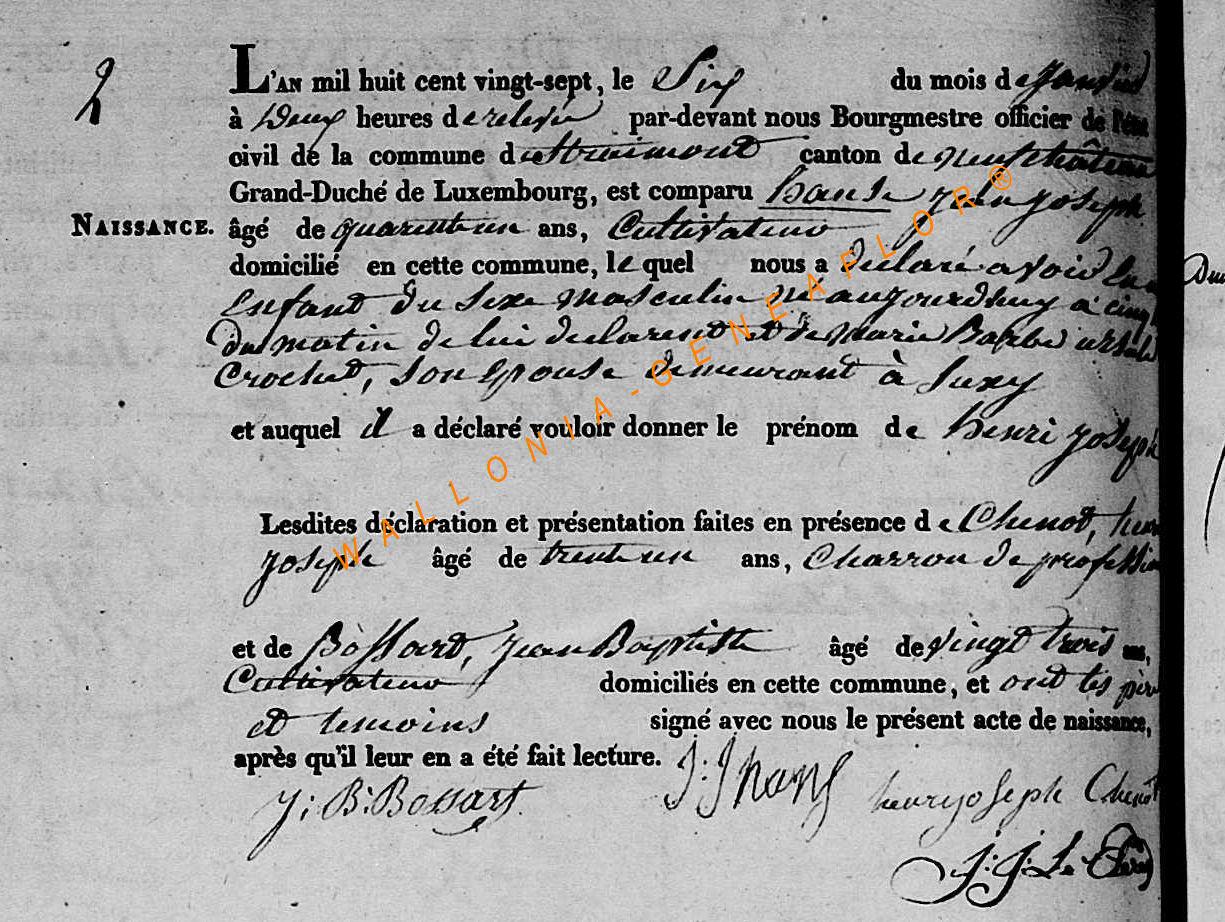 2
L'AN mil huit cent vingt-sept, le Six du mois de Janvier
à Deux heures de relevée par-devant nous Bourgmestre officier de l'état
civil de la commune de Straimont canton de neufchâteau
Grand-Duché de Luxembourg, est comparu Hanse jean joseph
NAISSANCE. âgé de quarente un ans, Cultivateur
domicilié en cette commune, le quel nous a declaré avoir un
Enfant du Sexe masculin né aujourdhuy a cinq
du matin de lui declarent et de Marie Barbe
Crochet, Son Epouse demeurant à Suxy
et auquel il a déclaré vouloir donner le prénom de henri joseph
Lesdites déclaration et présentation faites en présence de Chenot, henri
joseph âgé de trente un ans, Charron de profession
et de Bossart, jean Baptiste âgé de vingt trois ans,
Cultivateur domiciliés en cette commune, et ont les père
et temoins signé avec nous le présent acte de naissance,
après qu'il leur en a été fait lecture.
J: B: Bossart J: J hans henry joseph Chenot
WALLONIA-GENEAFLOR®